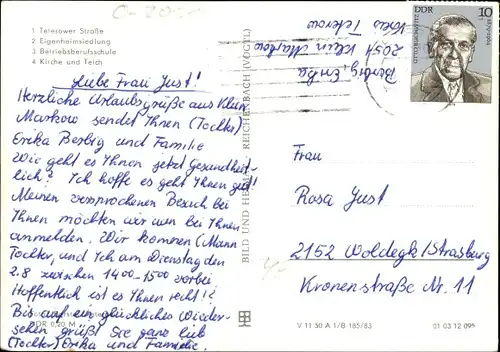 1 Teterower Straße
2 Eigenheimsiedlung
3 Betriebsberufsschule
4 Kirche und Teich
Liebe Frau Just!
Herzliche Urlaubsgrüße aus Klein
Markow sendet Ihnen (Tochter)
Erika Berbig und Familie
Wie geht es Ihnen jetzt Gesundheit-
lich? Ich hoffe es geht Ihnen gut!
Meinen versprochenen Besuch bei
Ihnen möchten wir nun bei Ihnen
anmelden. Wir kommen (Mann
Tochter, und Ich am Dienstag den
2.8 zwischen 1400-1500 vorbei
Hoffentlich ist es Ihnen recht!?
Bis auf ein glückliches Wieder-
sehen grüßt Sie ganz lieb
(Tochter) Erika und Familie.
DDR 0,20 M
BILD UND HEIMAT REICHENBACH (VOGTL)
Berbig, Erika
2051 Klein Markow
Kreis Teterow
10
DDR
Frau
Rosa Just
2152 Woldegk/Strasburg
Kronenstraße Nr. 11
V 11 50 A 1/B 185/83
01 03 12 095